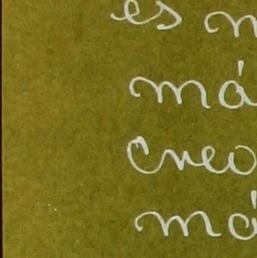 es m
má
Creo
má